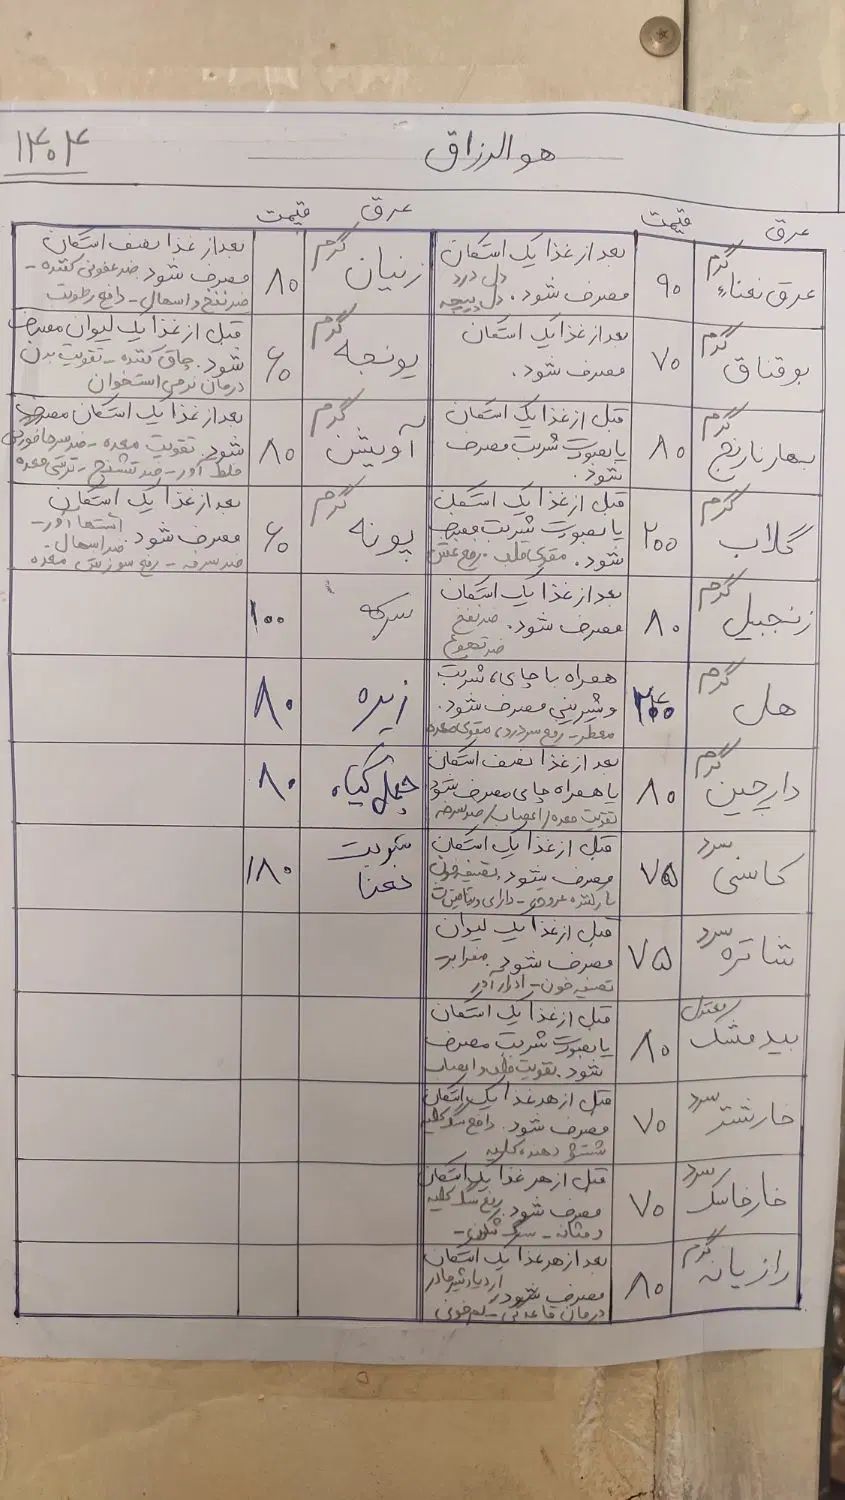 هو الرزاق
۱۴۰۴
عرق قیمت
عرق نعناء گرم ۹۰
بعد از غذا یک استکان
مصرف شود. دل درد
دل پیچه
بوقناق گرم ۷۰
بعد از غذا یک استکان
مصرف شود.
بهار نارنج گرم ۸۰
قبل از غذا یک استکان
یا بصورت شربت مصرف
شود.
گلاب گرم ۲۰۰
قبل از غذا یک استکان
یا بصورت شربت مصرف
شود. مقوی قلب. رفع عطش
زنجبیل گرم ۸۰
بعد از غذا یک استکان
مصرف شود. ضد نفخ
ضد تهوع
هل گرم
همراه با چای، شربت
و شیرینی مصرف شود.
معطر - رفع سردرد، مقوی معده
دارچین گرم ۸۰
بعد از غذا نصف استکان
یا همراه چای مصرف شود
تقویت معده / اعصاب / ضد سرفه
کاسنی سرد ۷۵
قبل از غذا یک استکان
مصرف شود. تصفیه خون
باز کننده عروق - دارای ویتامین
شاتره سرد ۷۵
قبل از غذا یک لیوان
مصرف شود. صفرابر -
تصفیه خون - ادرار آور
بیدمشک معتدل ۸۰
قبل از غذا یک استکان
یا بصورت شربت مصرف
شود. تقویت قلب و اعصاب
خارشتر سرد ۷۰
قبل از هر غذا یک استکان
مصرف شود. دافع سنگ کلیه
شستشو دهنده کلیه
خارخاسک سرد ۷۰
قبل از هر غذا یک استکان
مصرف شود. رفع سنگ کلیه
و مثانه - سنگ شکن -
رازیانه گرم ۸۰
بعد از هر غذا یک استکان
مصرف شود. ازدیاد شیر مادر
درمان قاعدگی - کم خونی
عرق قیمت
زنیان گرم ۸۰
بعد از غذا نصف استکان
مصرف شود. ضد عفونی کننده -
ضد نفخ و اسهال - دافع رطوبت
یونجه گرم ۶۰
قبل از غذا یک لیوان مصرف
شود. چاق کننده - تقویت بدن
درمان نرمی استخوان
آویشن گرم ۸۰
بعد از غذا یک استکان مصرف
شود. تقویت معده - ضد سرماخوردگی
خلط آور - ضد تشنج - ترشی معده
پونه گرم ۶۰
بعد از غذا یک استکان
مصرف شود. اشتها آور -
ضد اسهال -
ضد سرفه - رفع سوزش معده
سرکه ۱۰۰
زیره ۸۰
چهل گیاه ۸۰
شربت
نعنا ۱۸۰